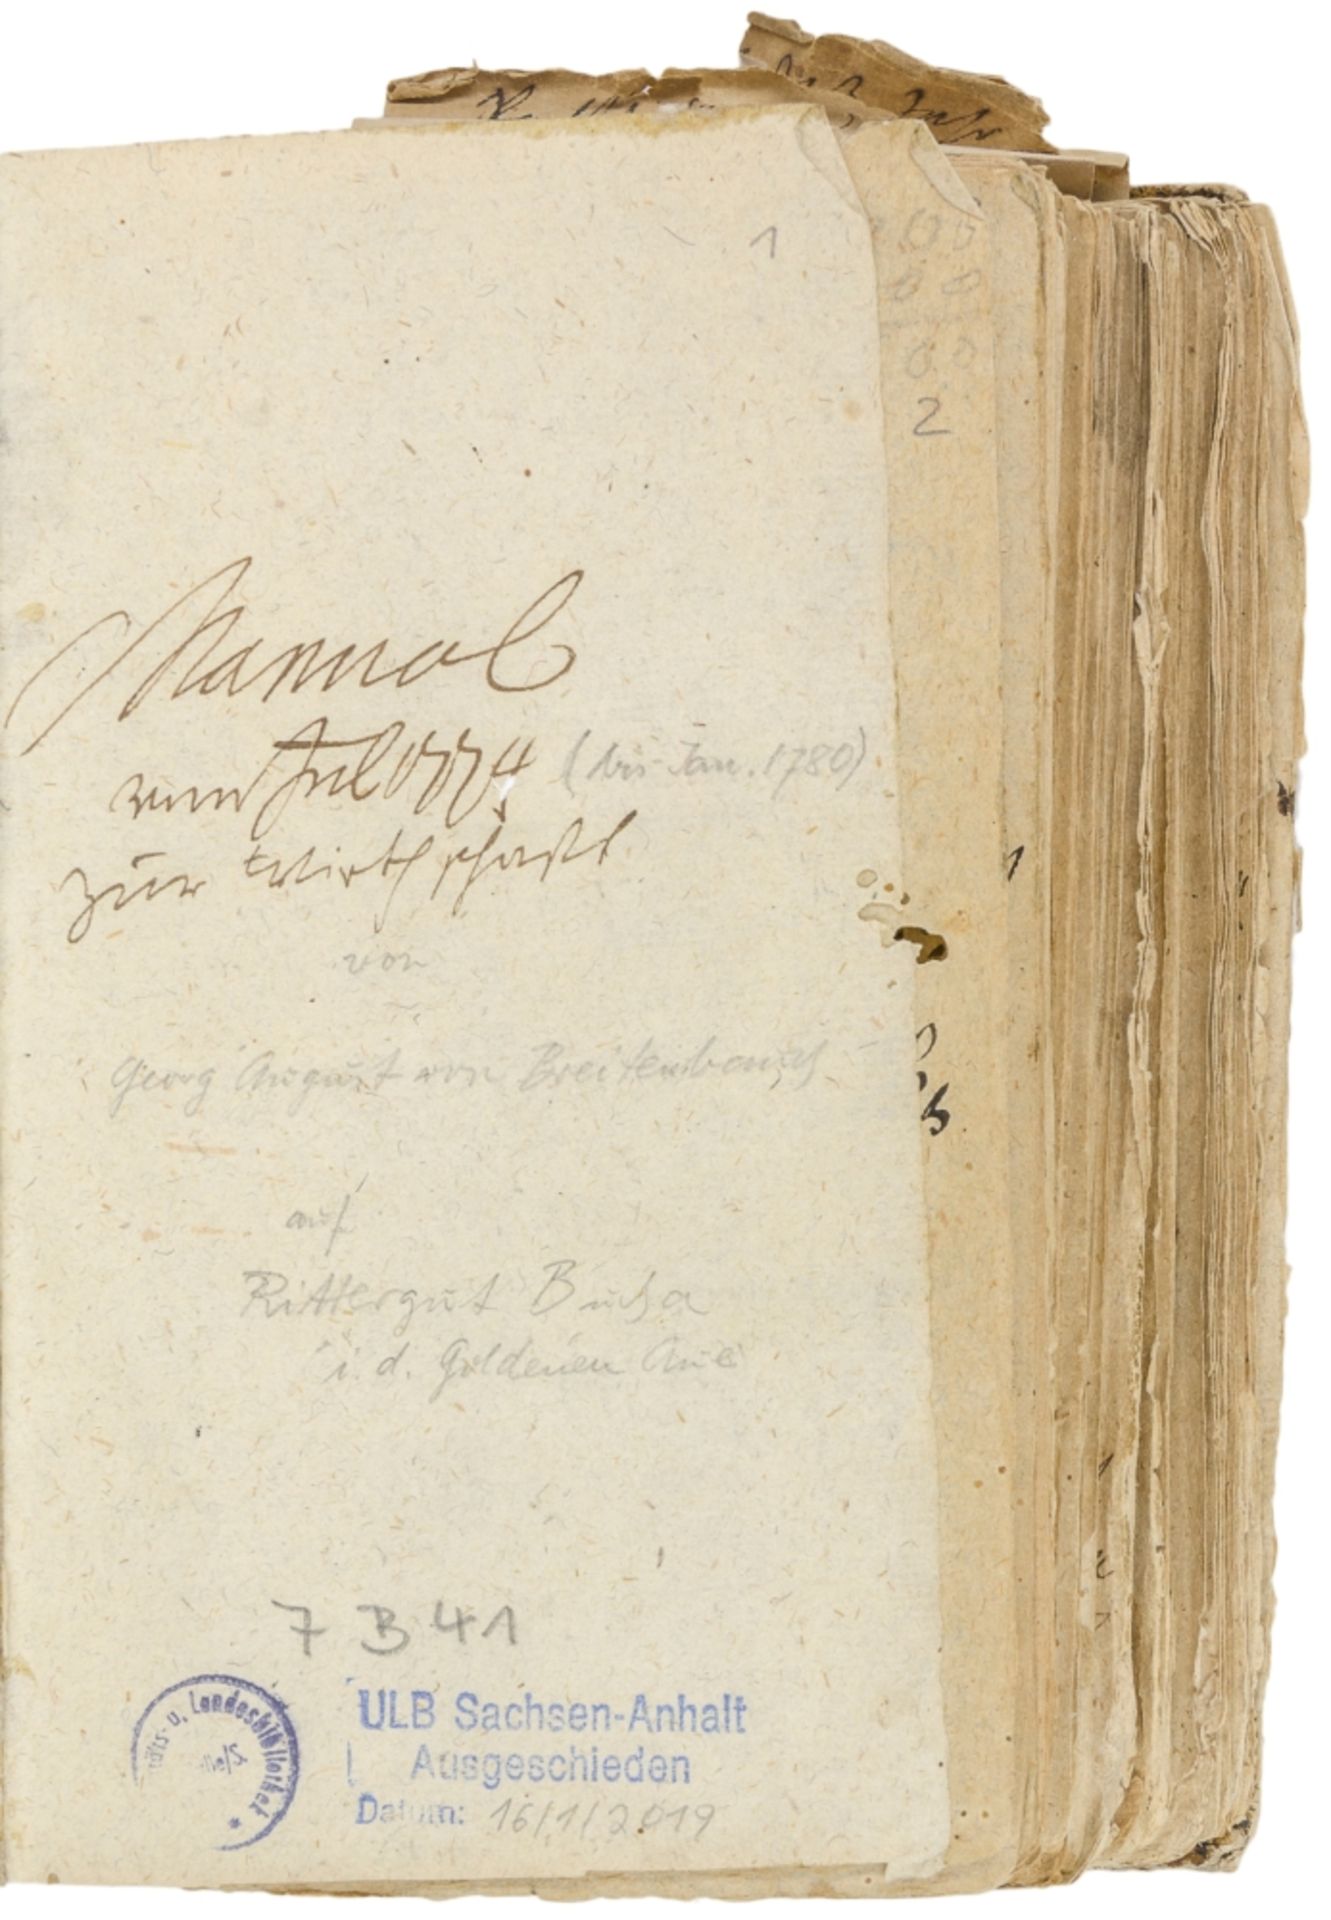 1
2
Manual
vom Jul 1774 (bis Jan. 1780)
zur Wirthschafft
von
Georg August von Breitenbauch
auf
Rittergut Bucha
i. d. Goldenen Aue
7 B 41
u. Landesbibliothek
ULB Sachsen-Anhalt
Ausgeschieden
Datum: 16/1/2019